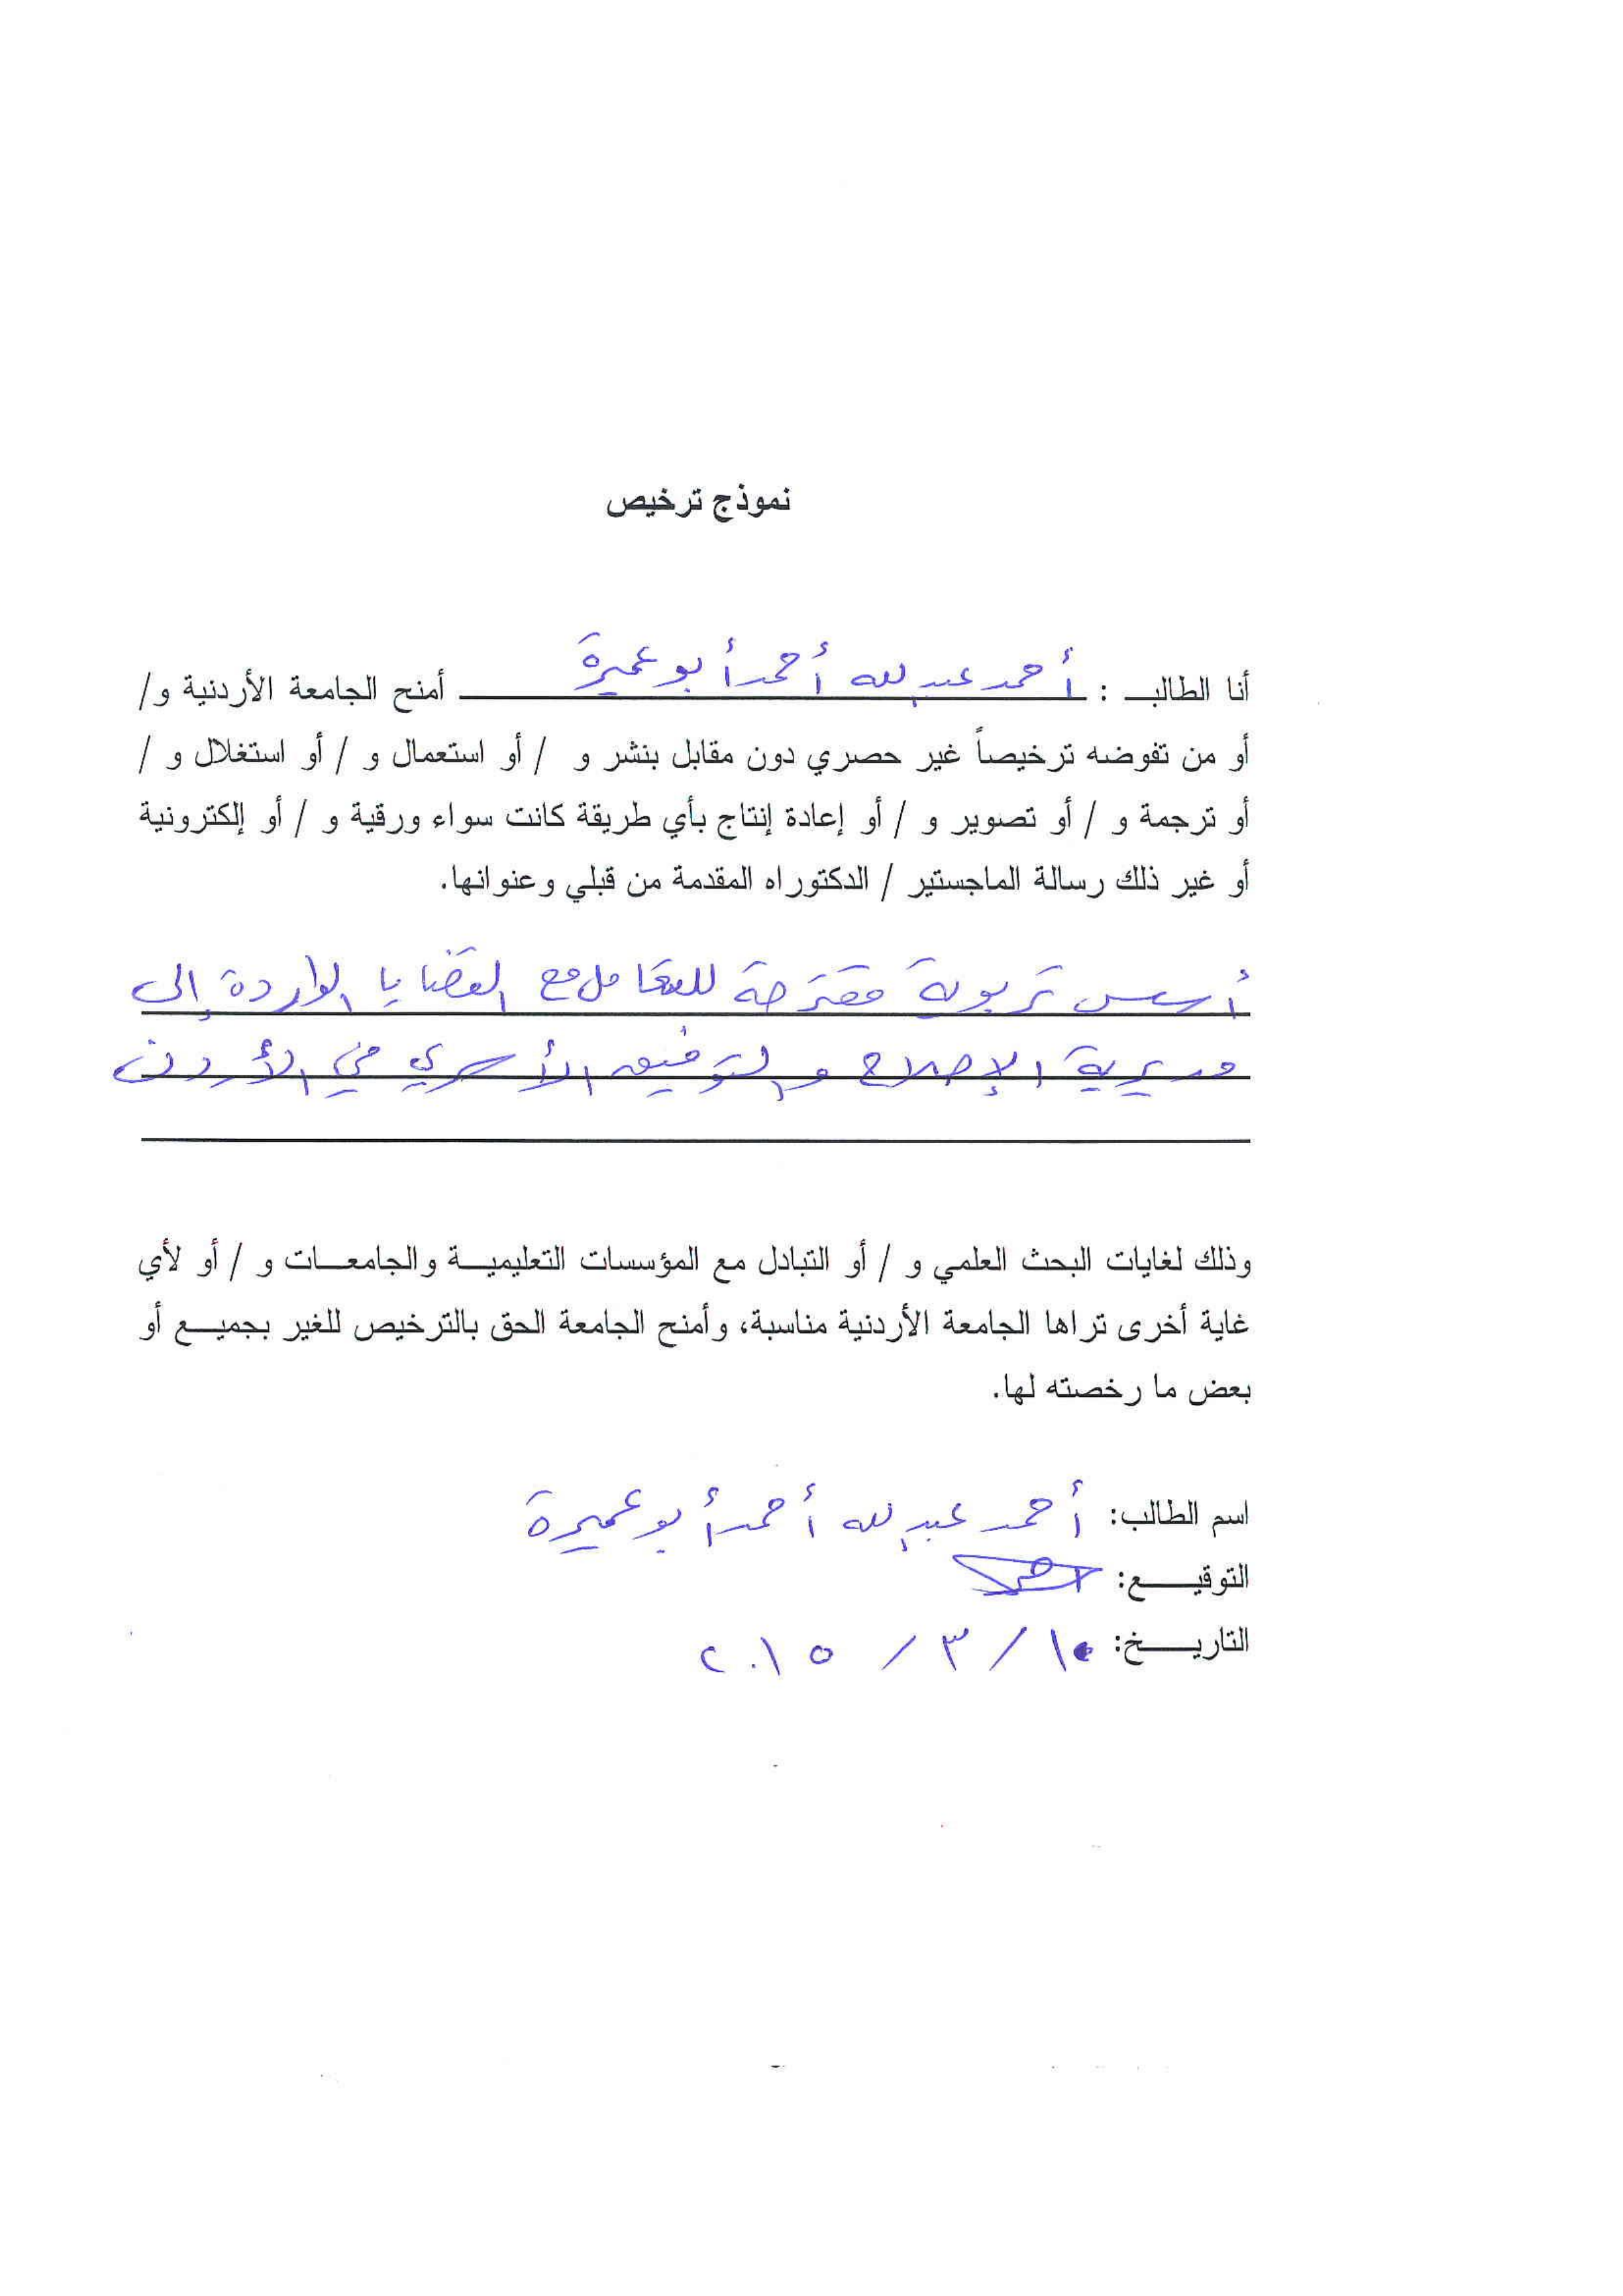 نموذج ترخيص
أنا الطالب : أحمد عبدالله أحمد أبو عميرة أمنح الجامعة الأردنية و/
أو من تفوضه ترخيصاً غير حصري دون مقابل بنشر و / أو استعمال و / أو استغلال و /
أو ترجمة و / أو تصوير و / أو إعادة إنتاج بأي طريقة كانت سواء ورقية و / أو إلكترونية
أو غير ذلك رسالة الماجستير / الدكتوراه المقدمة من قبلي وعنوانها.
أسس تربوية مقترحة للتعامل مع القضايا الواردة إلى
مديرية الإصلاح والتوفيق الأسري في الأردن
وذلك لغايات البحث العلمي و / أو التبادل مع المؤسسات التعليمية والجامعات و / أو لأي
غاية أخرى تراها الجامعة الأردنية مناسبة، وأمنح الجامعة الحق بالترخيص للغير بجميع أو
بعض ما رخصته لها.
اسم الطالب: أحمد عبدالله أحمد أبو عميرة
التوقيع: أحمد
التاريخ: ١٠ / ٣ / ٢٠١٥